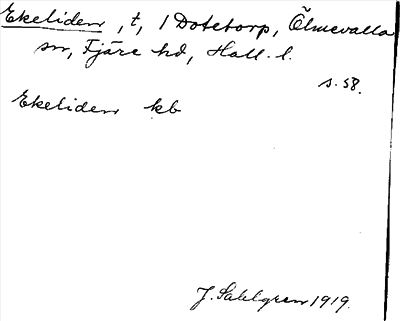 Ekeliden, t, 1 Dotetorp, Ölmevalla
sn, Fjäre hd, Hall. l.
s. 58.
Ekeliden kb
J. Sahlgren 1919.